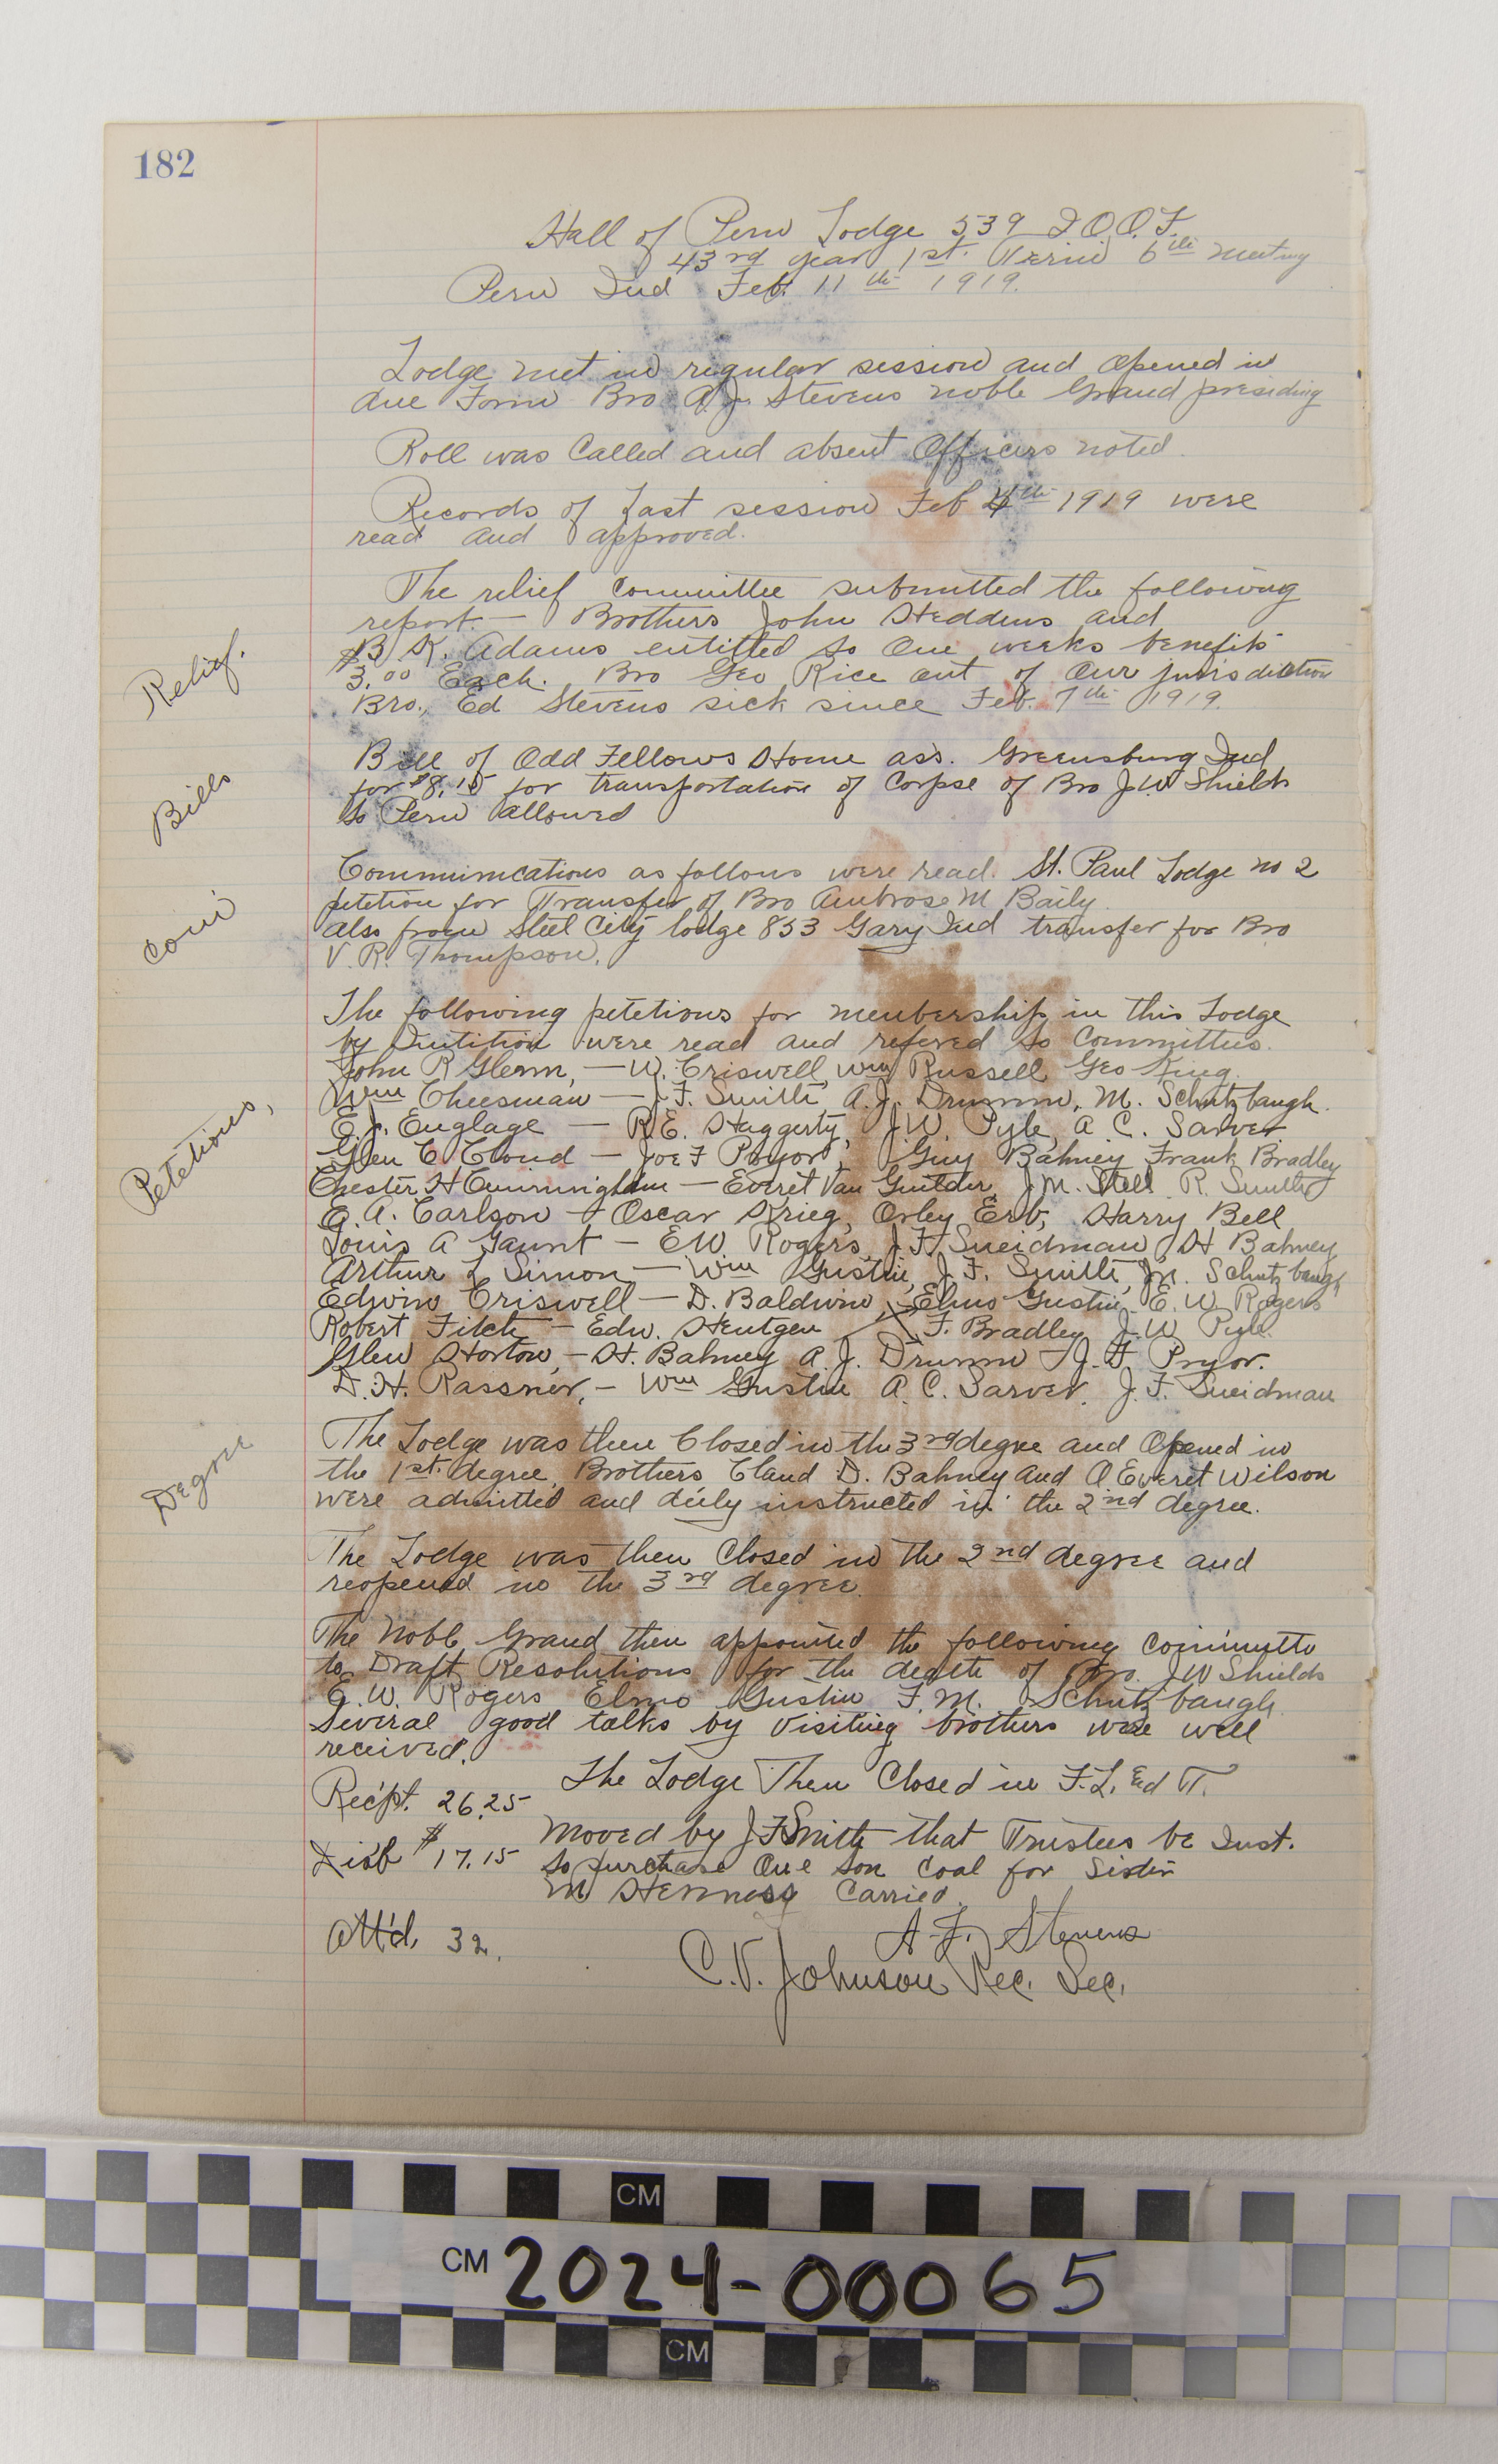 182
Hall of Peru Lodge 539 I.O.O.F.
43rd year 1st. Term 6th meeting
Peru Ind Feb. 11th 1919.
Lodge met in regular session and opened in
due Form Bro A.J. Stevens noble Grand presiding
Roll was Called and absent Officers noted.
Records of Last session Feb 4th 1919 were
read and approved.
The relief committee submitted the following
report.— Brothers John Heddens and
Relief.
B K. Adams entitled to One weeks benefits
$3.00 Each. Bro Geo Rice out of Our jurisdiction
Bro., Ed Stevens sick since Feb. 7th 1919.
Bills
Bill of Odd Fellows Home ass. Greensburg Ind
for $8.15 for transportation of Corpse of Bro J.W Shields
to Peru allowed
Com
Communications as follows were read. St. Paul Lodge no 2
petetion for Transfer of Bro Ambrose M Baily.
also from Steel City lodge 853 Gary Ind transfer for Bro
V. R. Thompson.
The following petetions for membership in this Lodge
by Intition were read and refered to Committees.
John R Glenn, — W. Criswell, Wm Russell Geo King.
Petetions,
Wm Cheesman — J.F. Smith A.J. Drumm, M. Schutzbaugh.
E.J. Englage — R.E. Haggerty, J.W. Pyle, A C. Sarver
Glen C Cloud — Joe F Pryor, Guy Bahney Frank Bradley
Chester H Cunningham — Everet Van Guilder, J.M. Stell R. Smith
C. A. Carlson — Oscar Krieg, Orley Erb, Harry Bell
Louis A Gaunt — E W Rogers, J.F. Sneidman, H Bahney
Arthur L Simon — Wm Gustin, J.F. Smith, M. Schutzbaugh
Edwin Criswell — D. Baldwin, Elmo Gustin. E. W Rogers
Robert Fitch, — Edw. Hentgen F. Bradley J.W Pyle.
Glen Horton, — H. Bahney A.J. Drumm — J.F. Pryor.
D.H. Rassner, — Wm Gustin A.C. Sarver. J.F. Sneidman
Degree
The Lodge was then Closed in the 3rd degree and Opened in
the 1st. degree, Brothers Claud D. Bahney and O Everet Wilson
were admitted and duly instructed in the 2nd degree.
The Lodge was then Closed in the 2nd degree and
reopened in the 3rd degree.
The Noble Grand then appointed the following committe
to Draft Resolutions for the death of Bro. J W Shields
E.W. Rogers Elmo Gustin F.M. Schutzbaugh.
Several good talks by Visiting brothers were well
received.
The Lodge Then Closed in F.L. Ed T.
Rec'pt. 26.25
Moved by J F Smith that Trustees be Inst.
Disb $17.15
to purchase One ton Coal for Sister
M Hennesy Carried.
Att'd. 32.
A.J. Stevens
C.V. Johnson Rec. Sec.
CM
CM 2024-00065
CM